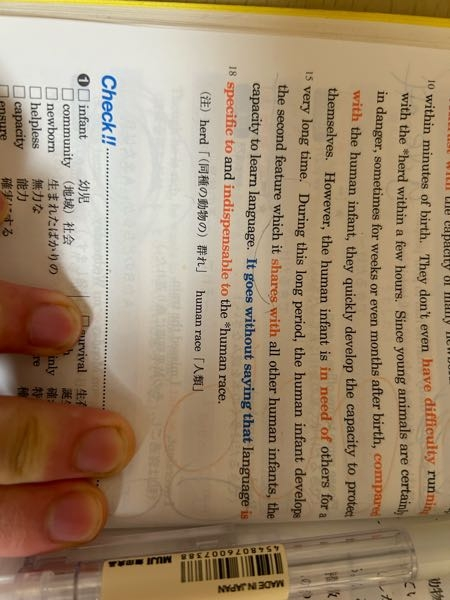 the capacity of many newborn
10 within minutes of birth. They don't even have difficulty running
with the *herd within a few hours. Since young animals are certainly
in danger, sometimes for weeks or even months after birth, compare
with the human infant, they quickly develop the capacity to protect
themselves. However, the human infant is in need of others for a
15 very long time. During this long period, the human infant develops
the second feature which it shares with all other human infants, the
capacity to learn language. It goes without saying that language is
18 specific to and indispensable to the *human race.
(注) herd「(同種の動物の) 群れ」 human race「人類」
Check!!
❶ □ infant 幼児 □ survival
□ community (地域) 社会
□ newborn 生まれたばかりの
□ helpless 無力な
□ capacity 能力
□ ensure
4548076007388
MUJI 無印良品
MADE IN JAPAN